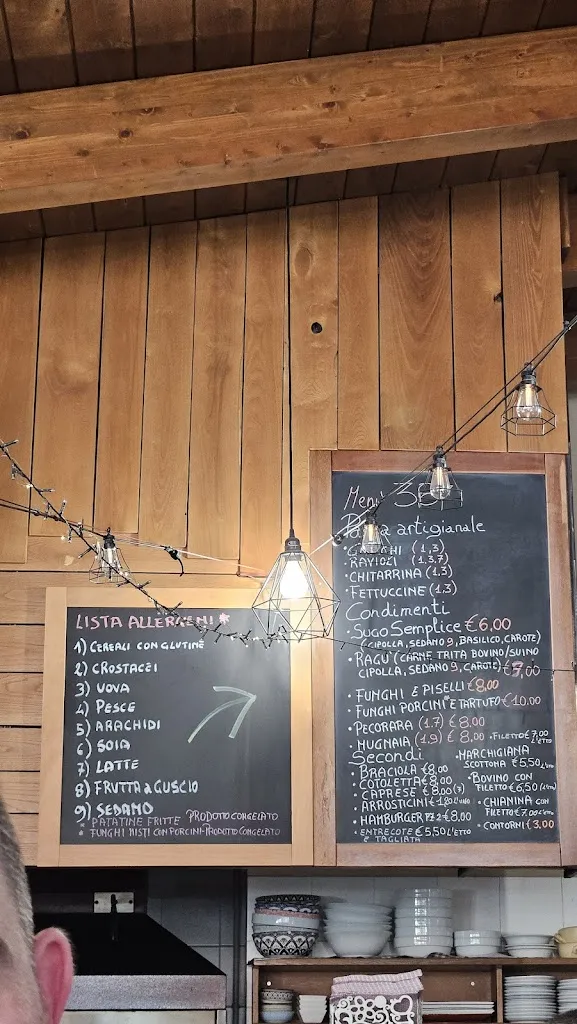 LISTA ALLERGENI *
1) CEREALI CON GLUTINE
2) CROSTACEI
3) UOVA
4) PESCE
5) ARACHIDI
6) SOIA
7) LATTE
8) FRUTTA a GUSCIO
9) SEDANO
* PATATINE FRITTE PRODOTTO CONGELATO
* FUNGHI MISTI CON PORCINI-PRODOTTO CONGELATO
Menù
artigianale
(1,3)
• RAVIOLI (1.3.7)
• CHITARRINA (1.3)
• FETTUCCINE (1.3)
Condimenti
SUGO SEMPLICE €6,00
(CIPOLLA, SEDANO 9, BASILICO, CAROTE)
• RAGU' (CARNE TRITA BOVINO/SUINO
CIPOLLA, SEDANO 9, CAROTE)
• FUNGHI E PISELLI €8,00
• FUNGHI PORCINI* E TARTUFO €10.00
• PECORARA (1.7) € 8.00
• MUGNAIA (1,9) € 8,00
Secondi
• BRACIOLA €8,00
• COTOLETTA €8,00
• CAPRESE €8,00 (7)
• ARROSTICINI
• HAMBURGER €8,00
• ENTRECOTE €5,50 L'ETTO
E TAGLIATA
• FILETTO €7,00
L'ETTO
• MARCHIGIANA
SCOTTONA €5,50 L'ETTO
• BOVINO CON
FILETTO €6,50 (L'ETTO)
• CHIANINA CON
FILETTO €7.00 L'ETTO
• CONTORNI €3.00